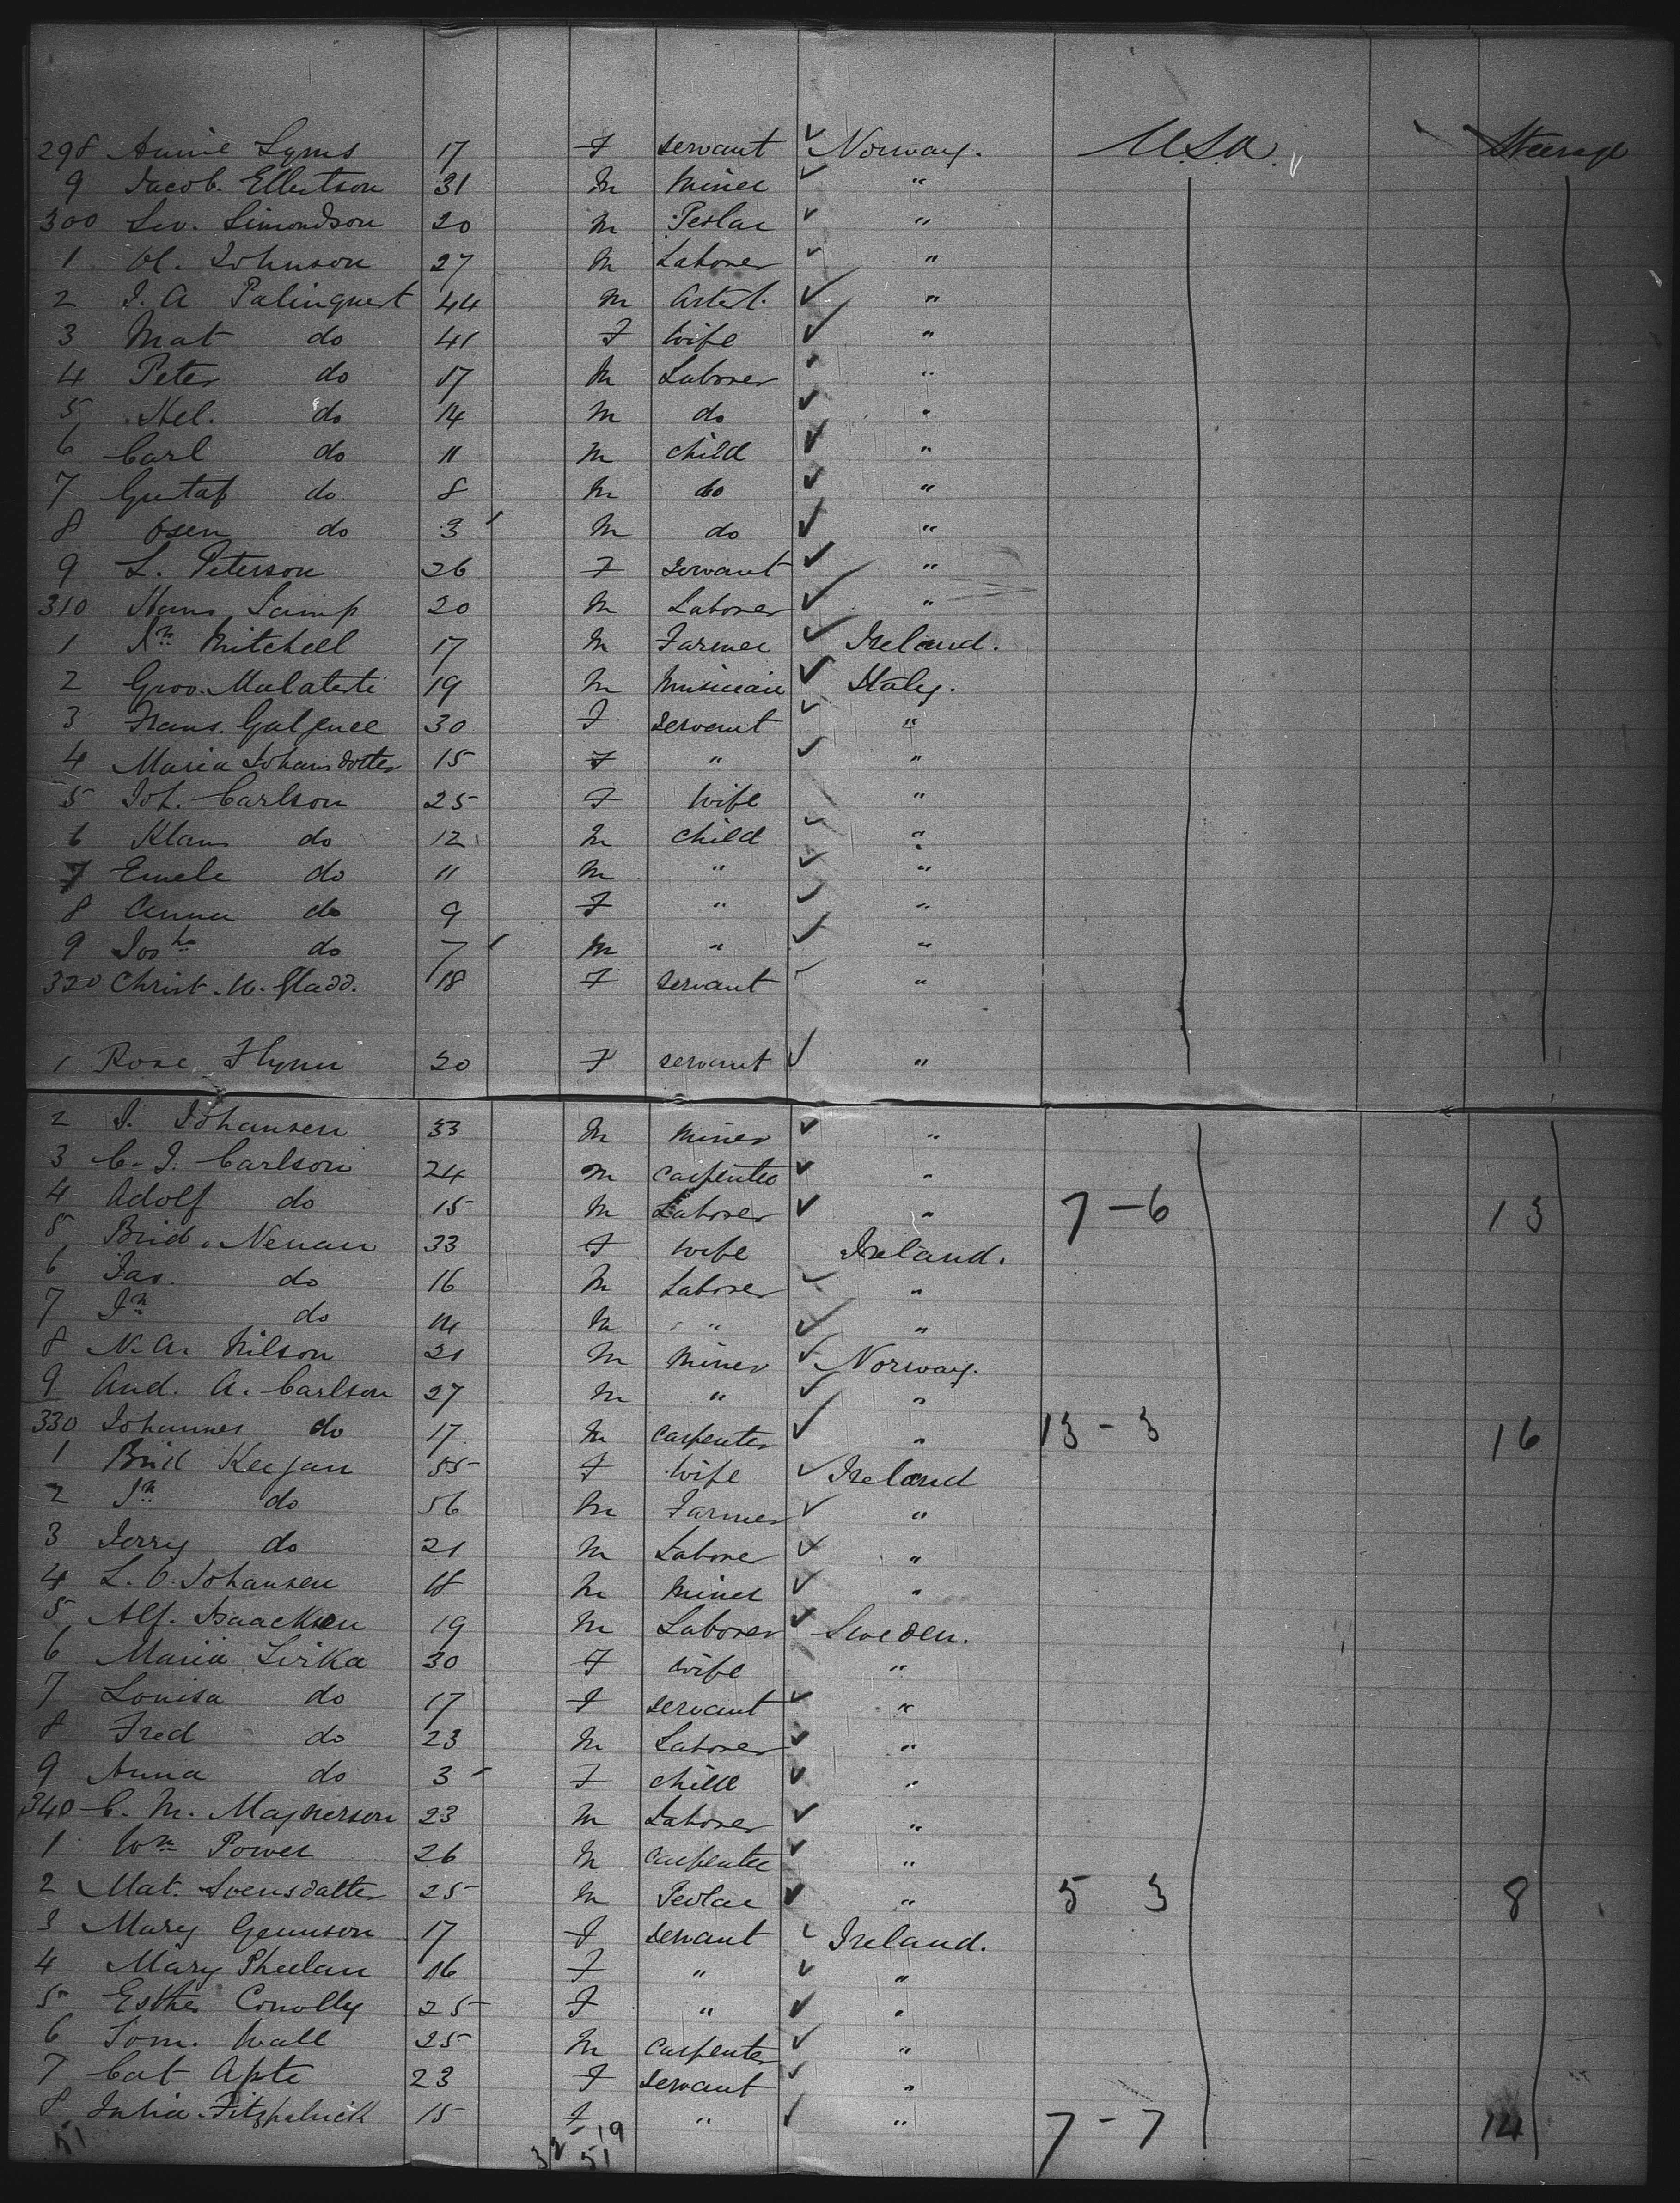 298 Annie Lyms 17 F servant ✓ Norway. U.S.A. Steerage
9 Jacob Ellertson 31 M Miner ✓ "
300 Sev. Simondson 20 M Pedlar ✓ "
1 Ol. Johnson 27 M Laborer ✓ "
2 J. A Palinquert 44 M Artist. ✓ "
3 Mat do 41 F Wife ✓ "
4 Peter do 17 M Laborer "
5 Hel. do 14 M do ✓ "
6 Carl do 11 M child ✓ "
7 Gustaf do 8 M do ✓ "
8 Osen do 3 M do ✓ "
9 L. Peterson 26 F Servant ✓ "
310 Hans Samp 20 M Laborer ✓ "
1 Jn Mitchell 17 M Farmer ✓ Ireland.
2 Giov. Malatesti 19 M Musician ✓ Italy.
3 Frans. 30 F servant ✓ "
4 Maria Johansdotter 15 F " ✓ "
5 Joh. Carlson 25 F Wife "
6 Klaus do 12 M child ✓ "
7 Emele do 11 M " ✓ "
8 Anna do 9 F " ✓ "
9 Josho do 7 M " ✓ "
320 Christ. N. Gladd. 18 F servant ✓ "
1 Rose Flynn 20 F servant ✓ "
2 J. Johansen 33 M Miner ✓ "
3 C. J. Carlson 24 M carpenter ✓ "
4 Adolf do 15 M Laborer ✓ " 7-6 13
5 Brid. Nenan 33 F wife Ireland.
6 Jas. do 16 M Laborer ✓ "
7 Jn do 14 M " ✓ "
8 N. A. Nilson 21 M Miner ✓ Norway.
9 And. A. Carlson 27 M " ✓ "
330 Johannes do 17 M carpenter ✓ " 13-3 16
1 Brid Keegan 55 F wife ✓ Ireland
2 Jn do 56 M Farmer ✓ "
3 Jerry do 21 M Labore ✓ "
4 L. O. Johansen 18 M Miner ✓ "
5 Alf. Isaacksen 19 M Laborer ✓ Sweden.
6 Maria Lirka 30 F wife "
7 Louisa do 17 F servant ✓ "
8 Fred do 23 M Laborer ✓ "
9 Anna do 3 F child ✓ "
340 C. M. Magnerson 23 M Laborer ✓ "
1 Wm Power 26 M carpenter ✓ "
2 Mat. Svensdatter 25 M Pedlar ✓ " 5 3 8
3 Mary Gennson 17 F servant ✓ Ireland.
4 Mary Phelan 16 F " ✓ "
5 Esther Conolly 25 F " ✓ "
6 Tom. Wall 25 M carpenter ✓ "
7 Cat Apte 23 F servant ✓ "
8 Julia Fitzpatrick 15 F " ✓ " 7-7 14
51 32-19
51